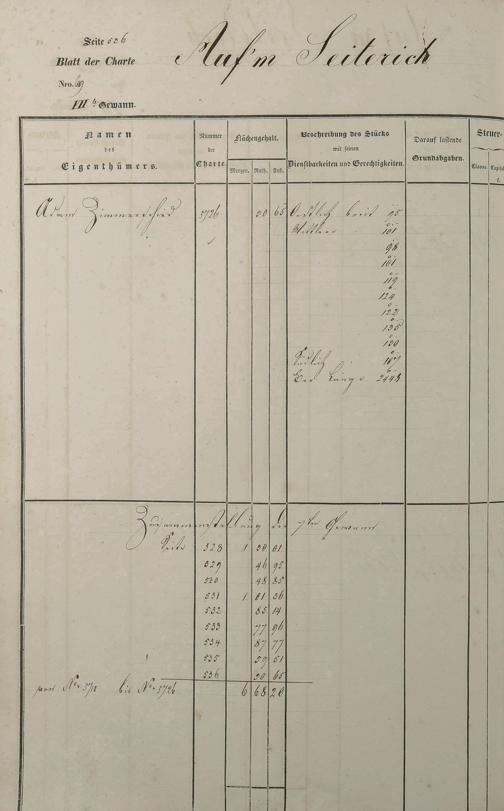 Seite 536
Auf'm Seiterich
Blatt der Charte
Nro.
III Gewann.
Namen des Eigenthümers.
Nummer der Charte
Flächengehalt.
Morgen. Ruth. Fuß.
Beschreibung des Stücks mit seinen Dienstbarkeiten und Gerechtigkeiten.
Darauf lastende Grundabgaben.
Steuer-
Classe. Capital
f.
Adam Zimmerschied 5726 30 65 Oestlich breit 95
Mittler 101
98
101
119
124
122
135
120
Südlich
Die Länge 2448
Zusammenstellung der 7ten Gewann
Seite 528 1 30 01
529 46 92
530 48 85
531 1 01 36
532 85 14
533 77 96
534 87 77
535 59 51
536 30 65
von No. bis No. 5726 6 68 20